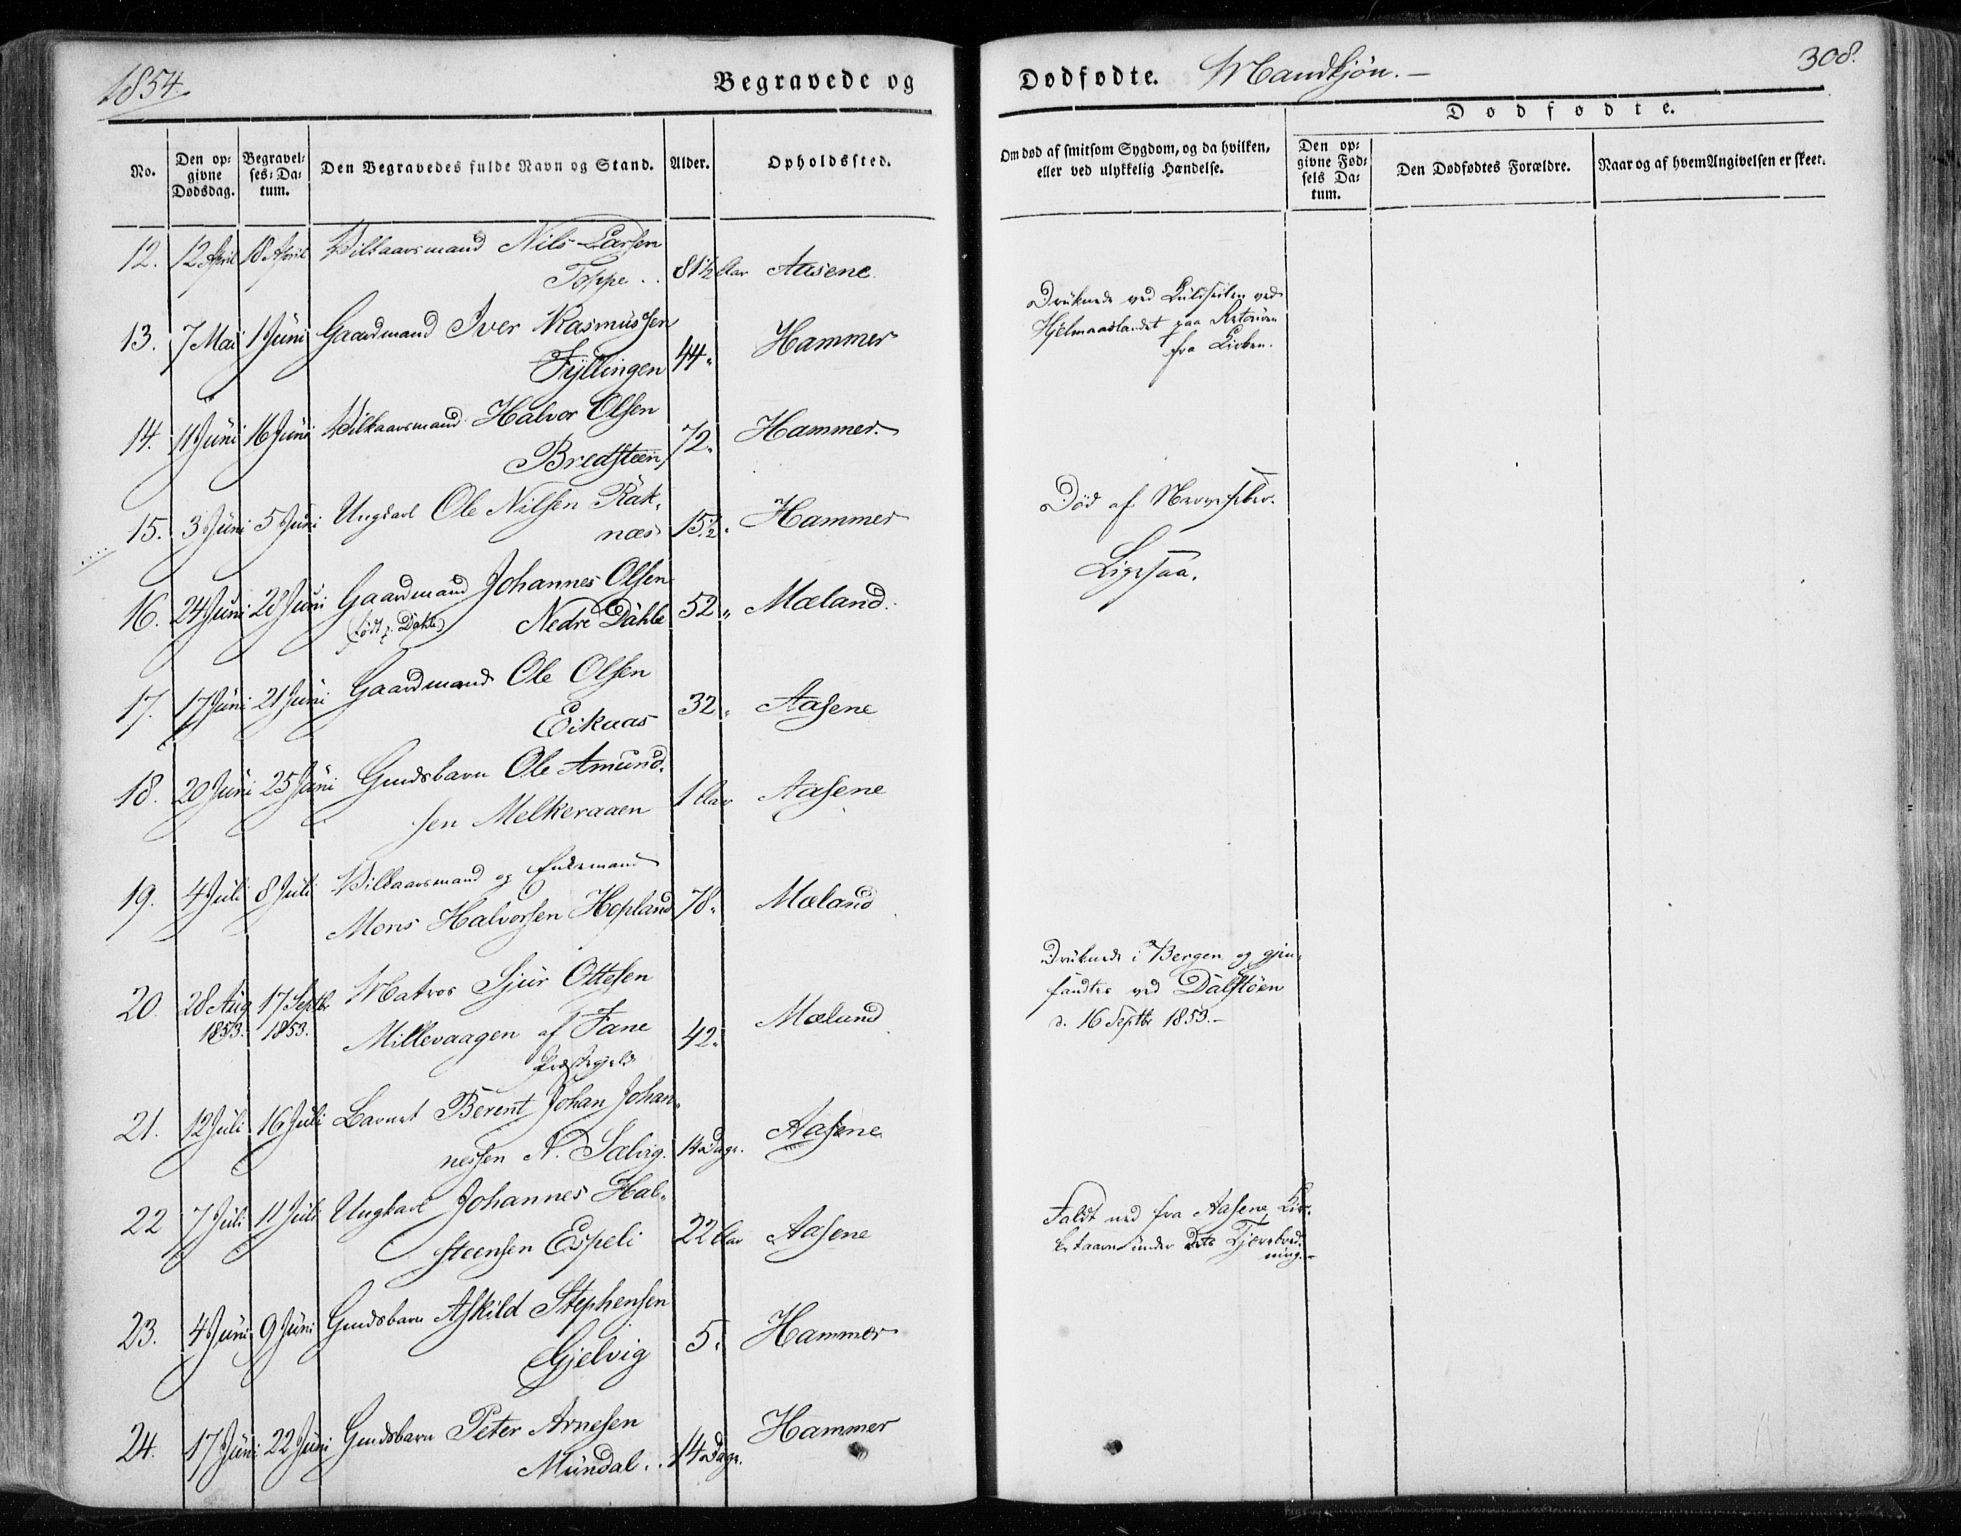 1854.
Begravede og
Dødfødte. Mandkjøn.
308.
No.
Den op=
givne
Dødsdag.
Begravel=
ses=Da=
tum.
Den Begravedes fulde Navn og Stand.
Alder.
Opholdssted.
Om død af smitsom Sygdom, og da hvilken,
eller ved ulykkelig Hændelse.
Dødfødte.
Den op=
givne Fød=
sels Da=
tum.
Den Dødfødtes Forældre.
Naar og af hvem Angivelsen er skeet.
12. 12 April 18 April Vilkaarsmand Nils Larsen
Toppe .. 81½ Aar Aasene.
Druknede ved Kulseilen ved
Hjelmaaslandet paa Retouren
fra Kirken.
13. 7 Mai 1 Juni Gaardmand Iver Rasmussen
Fyllingen 44 " Hammer
14. 11 Juni 16 Juni Vilkaarsmand Halvor Olsen
Bredsteen, 72 " Hammer.
15. 3 Juni 5 Juni Ungkarl Ole Nilsen Rak-
næs 15½ " Hammer
Død af Nervefeber.
16. 24 Juni 28 Juni Gaardmand Johannes Olsen
(født p. Dahle) Nedre Dahle 52 " Mæland.
Ligesaa.
17. 17 Juni 21 Juni Gaardmand Ole Olsen
Eikaas 32 " Aasene
18. 20 Juni 25 Juni Gmdsbarn Ole Amund-
sen Melkeraaen 1 Aar Aasene
19. 4 Juli 8 Juli Vilkaarsmand og Enkemand
Mons Halvorsen Hopland 78 " Mæland
20. 28 Aug 17 Septbr Matros Sjur Ottesen
1853. 1853. Millevaagen af Fane
Præstegjeld 42 " Mæland
Druknede i Bergen og gjen-
fandtes ved Dalstøen
d. 16 Septbr 1853.
21. 12 Juli 16 Juli Barnet Berent Johan Johan-
nessen N. Sælvig. 14 Dage. Aasene
22 7 Juli 11 Juli Ungkarl Johannes Hal-
steensen Espeli 22 Aar Aasene
Faldt ned fra Aasene Kir-
ketaarn under dets Tjærebred-
ning.
23. 4 Juni 9 Juni Gmdsbarn Askild Stephensen
Gjelvig 5 " Hammer
24. 17 Juni 22 Juni Gmdsbarn Peter Arnesen
Mundal .. 14 Dage. Hammer